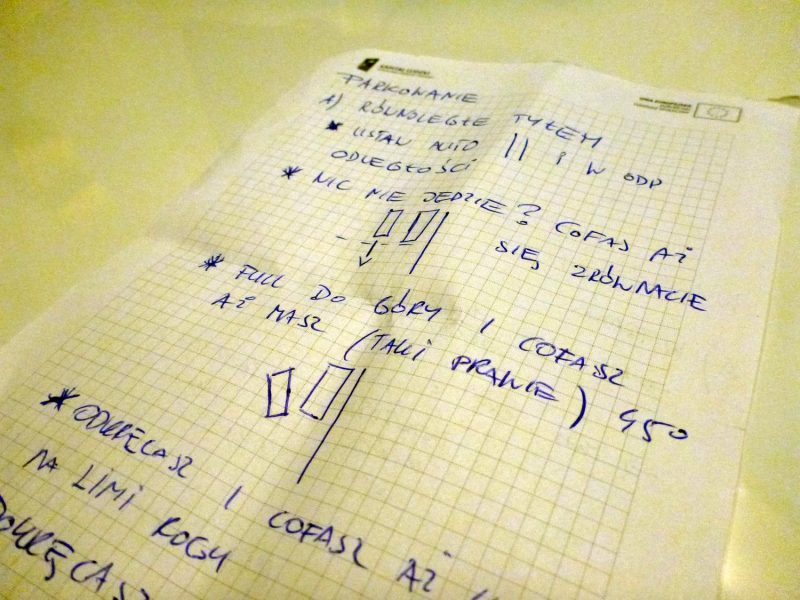 KAPITAŁ LUDZKI
UNIA EUROPEJSKA
PARKOWANIE
A) RÓWNOLEGŁE TYŁEM
* USTAW AUTO || I W ODP
ODLEGŁOŚCI
* NIC NIE JEDZIE? COFAJ AŻ
SIĘ ZRÓWNACIE
* FULL DO GÓRY I COFASZ
AŻ MASZ (TAKI PRAWIE) 45°
* ODKRĘCASZ I COFASZ AŻ
NA LINII ROGU
DOKRĘCASZ